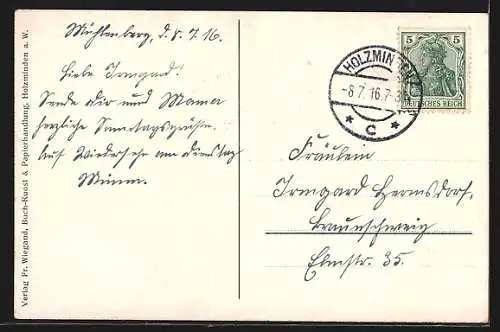 Mühlenberg, d. 8. 7. 16.
Liebe Irmgard!
Sende dir und Mama
herzliche Sonntagsgrüße.
Auf Wiedersehn am Dienstag
HOLZMINDEN
-8.7.16.7-8
* C *
5 5
DEUTSCHES REICH
Fräulein
Irmgard Hermsdorf.
Braunschweig
Elmstr. 35.
Verlag Fr. Wiegand, Buch-Kunst & Papierhandlung, Holzminden a. W.